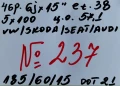 46р. 6j×15" et. 38
5x100 ц.о. 57.1
VW/SKODA/SEAT/AUDI
№ 237
185/60/15 DOT 21